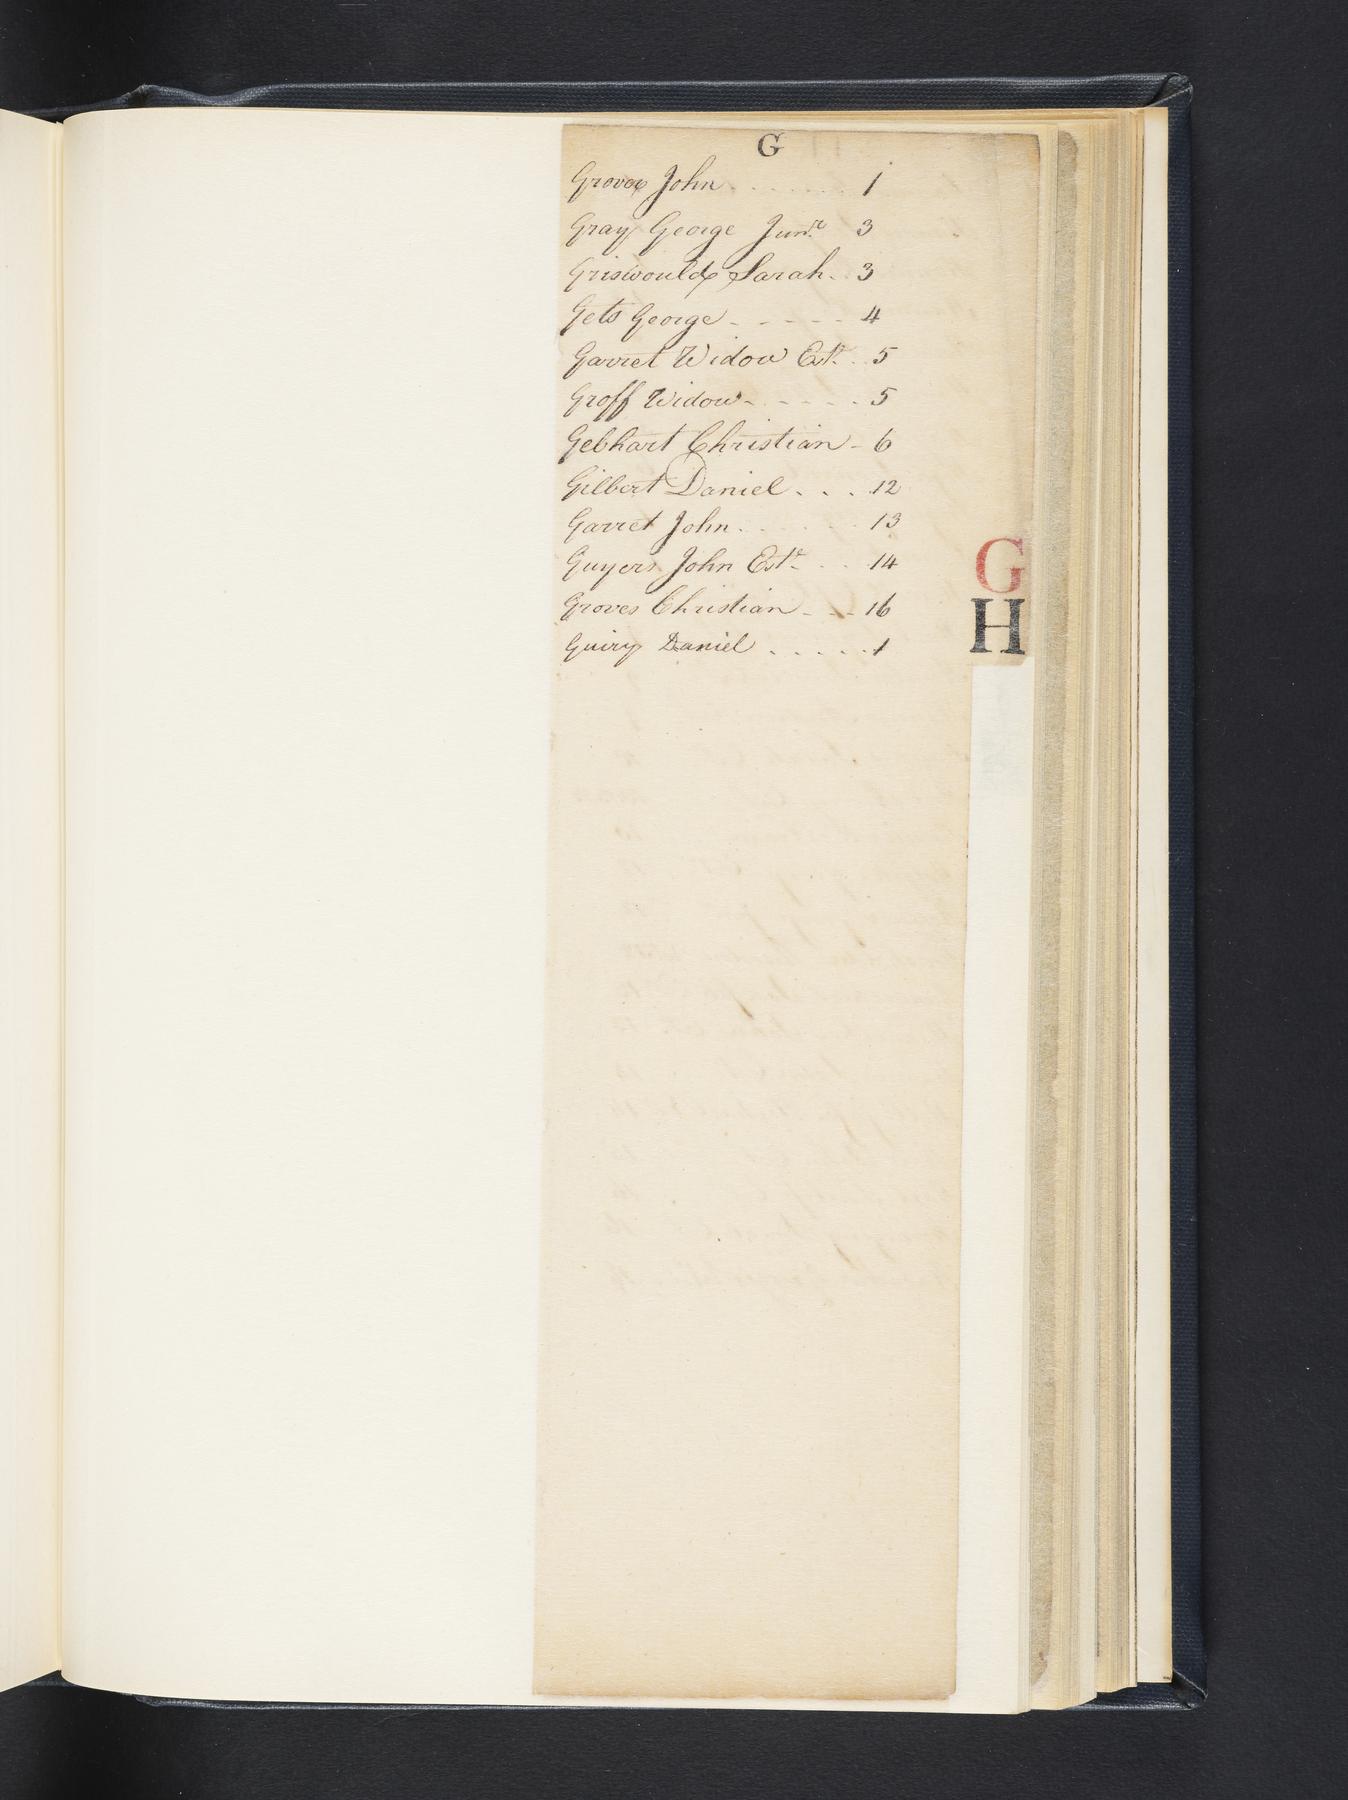 G
Grover John . . . . . . . 1
Gray George Junr 3
Griswould Sarah . . 3
Gets George - - - - - 4
Garret Widow Estt . . 5
Groff Widow - - - - - 5
Gebhart Christian - 6
Gilbert Daniel . . . 12
Garret John . . . . . . 13
Guyers John Estt - . . 14
Groves Christian - - - 16
Guiry Daniel . . . . . 1
G
H